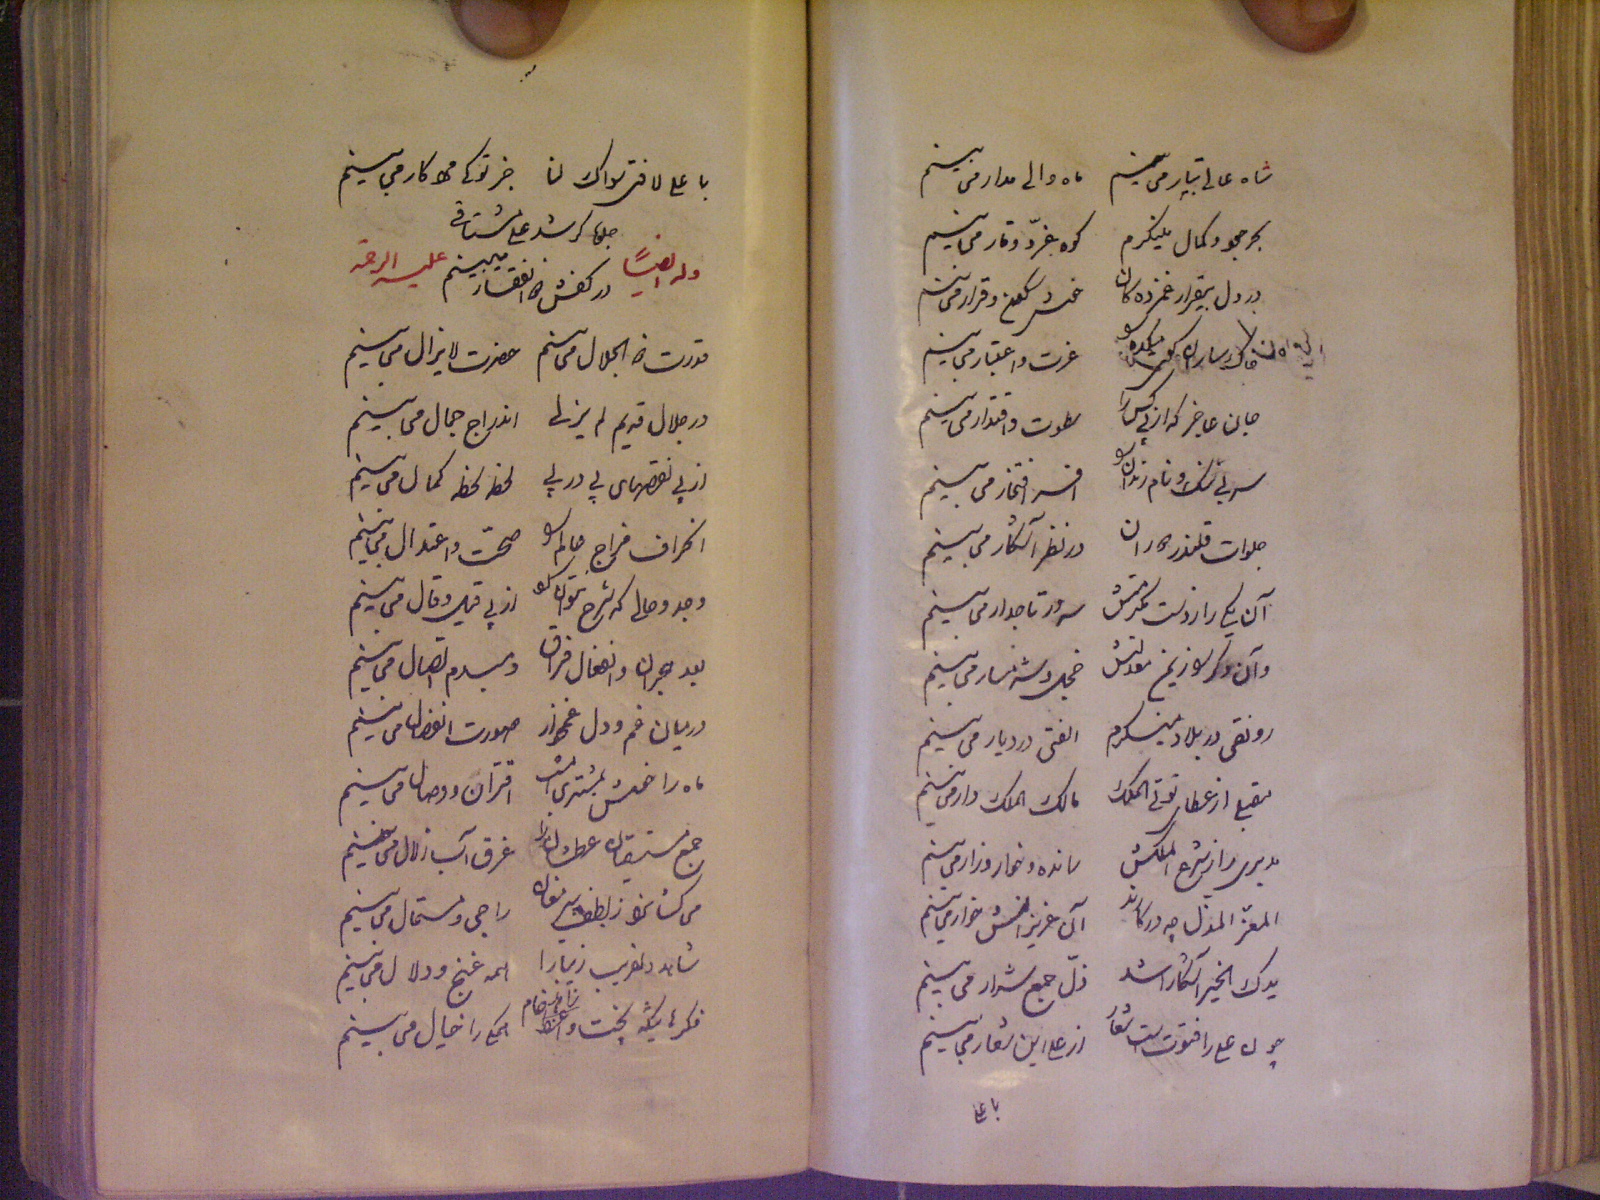 شاه عالی تبار می بینم ماه والی مدار می بینم
بحر جود و کمال مینگرم کوه بفرّ و وقار می بینم
در دل بیقرار غمزدگان قرار می بینم
عزت و اعتبار می بینم
جان عاجز که از پی سطوت و اقتدار می بینم
سر بی ننک و نام رندان افسر افتخار می بینم
جلوات قلندر در نظر آشکار می بینم
آن یکی را ز دست سرور تاجدار می بینم
وآن دکر خجل و شرمسار می بینم
رونقی در بلاد مینکرم الفتی در دیار می بینم
مقبلی از عطای تؤتی الملک مالک الملک دار می بینم
مدبری را رانده و خوار و زار می بینم
المعزّ المذل چه در کارند آن عزیز خوار می بینم
بیدک الخیر آشکارا شد ذلّ جمع شرار می بینم
چون علی را فتوتست شعار از علی این شعار می بینم
با علی
با علی لا فتی سواک لنا جز تو کی مرد کار می بینم
جلوه کر شد علی مشتاقی
در کفش ذو الفقار میبینم
وله ایضاً علیه الرحمه
قدرت ذو الجلال می بینم حضرت لایزال می بینم
در جلال قدیم لم یزلی اندراج جمال می بینم
از پی نقصهای پی در پی لحظه لحظه کمال می بینم
انحراف مزاج عالم صحّت و اعتدال می بینم
وجد و حالی که شرح نتوان از پی قیل و قال می بینم
بعد هجران و انفصال فراق دمبدم اتصال می بینم
در میان غم و دل غمخوار صورت انفصال می بینم
ماه را مشتری امشب اقتران و وصال می بینم
جمع غرق آب زلال می بینم
می کشان ز لطف پیر مغان راحی و مستمال می بینم
شاهد دلفریب زیبا را همه غنج و دلال می بینم
فکرهای پخت واعظ خام همکی را خیال می بینم